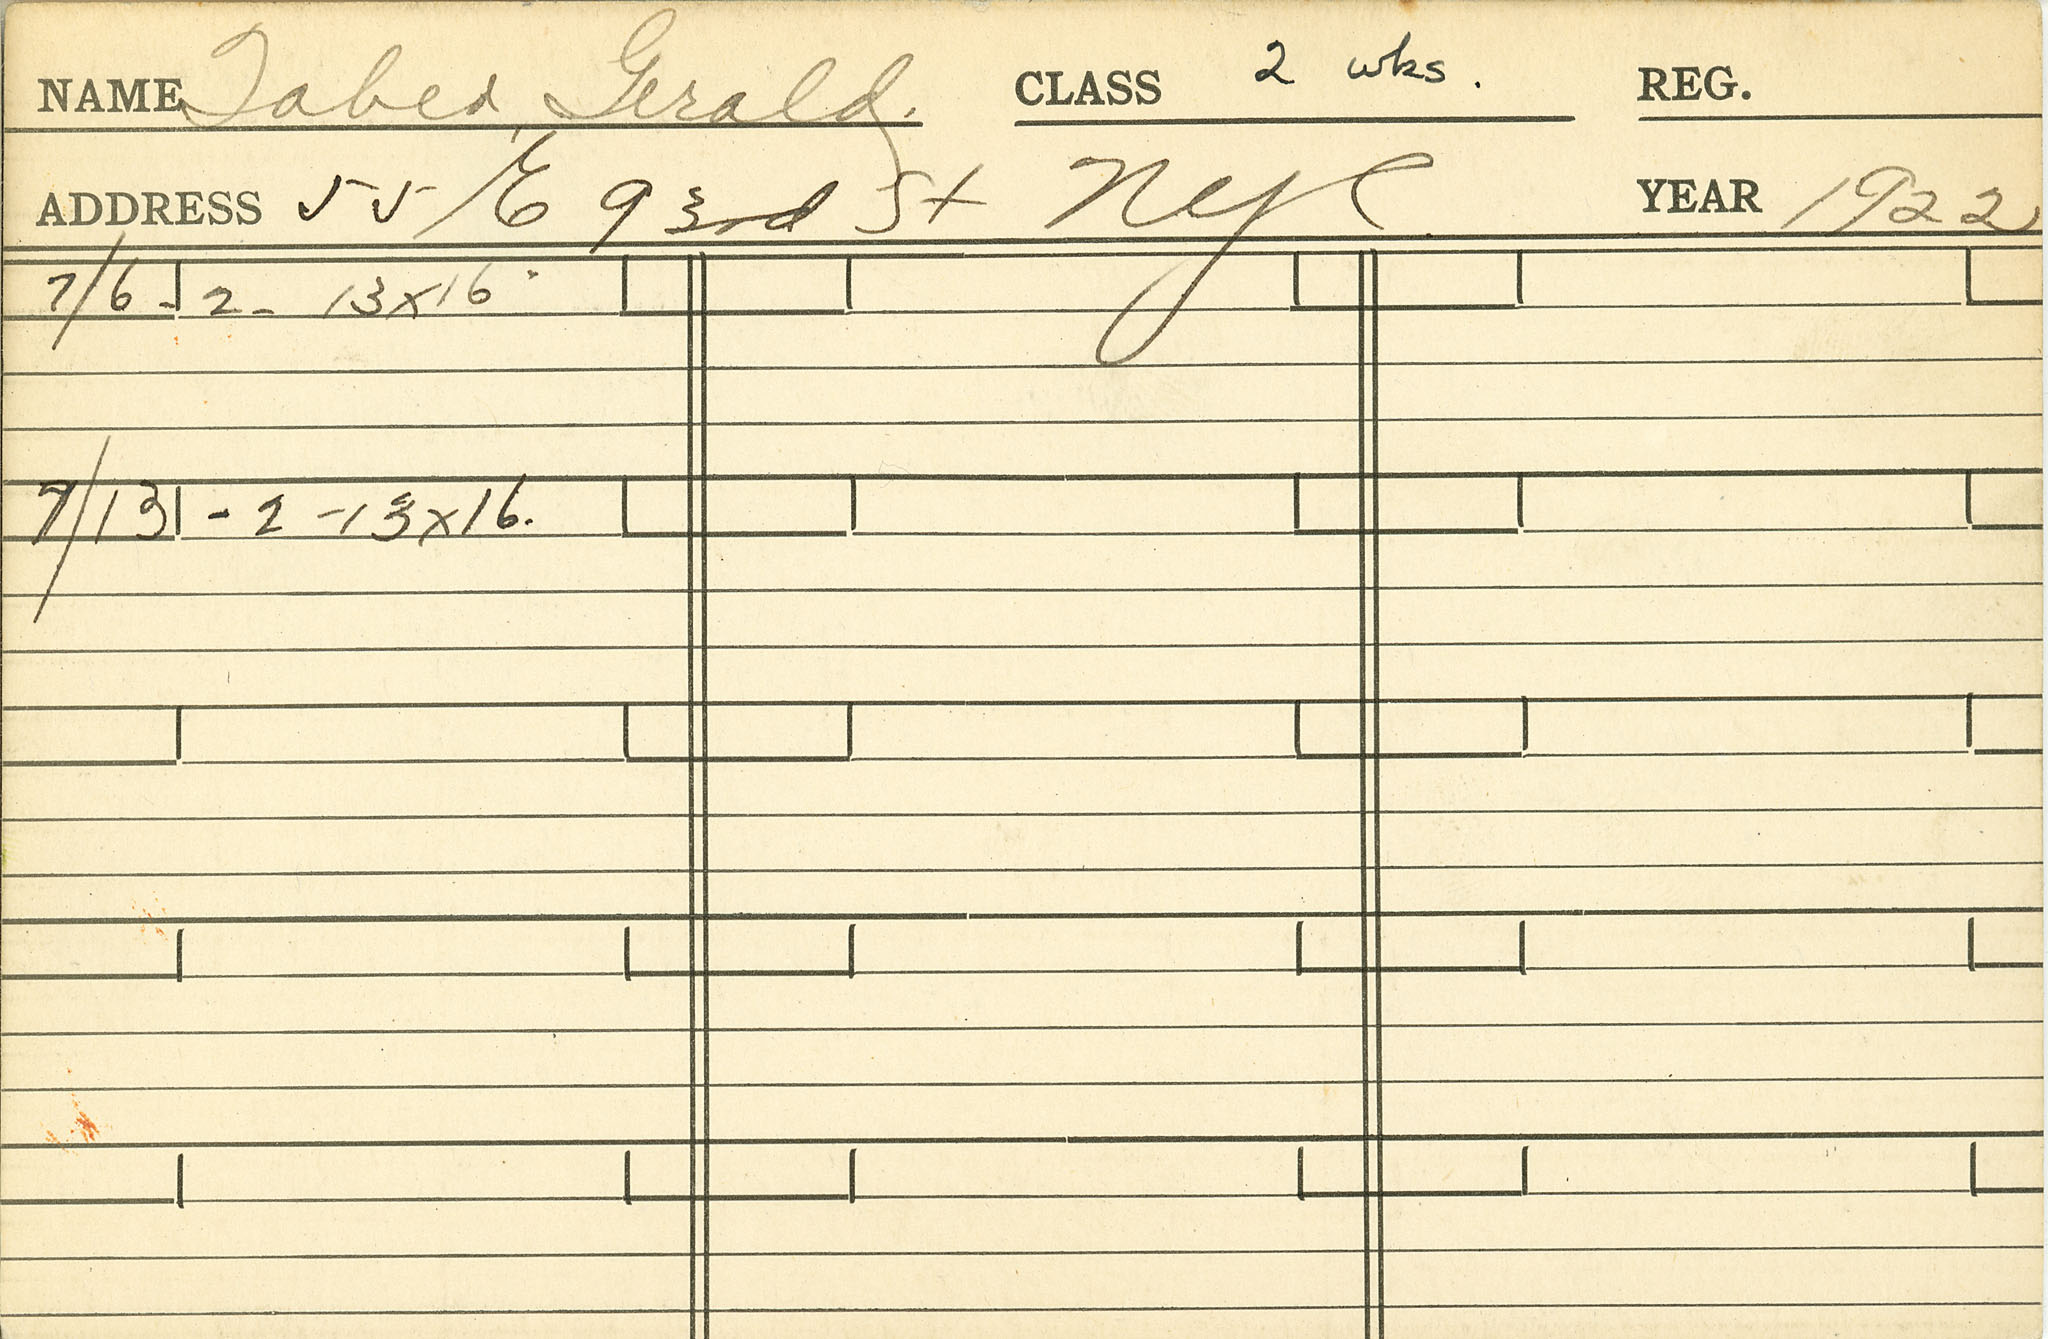 NAME Taber, Gerald. CLASS 2 wks. REG.
ADDRESS 55 E 93rd St NYC YEAR 1922
7/6 - 2 - 13x16
7/13 - 2 - 13x16.